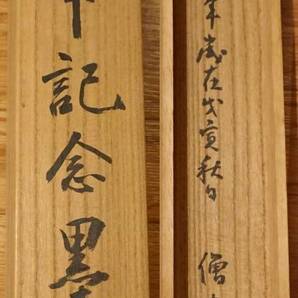 記念
年歳在戊寅秋日 僧